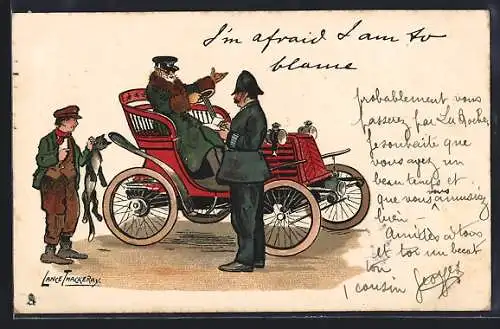 I'm afraid I am to
blame
probablement vous
passerez par La Roche,
je souhaite que
vous ayez un
beau temps et
que vous vous amusiez
bien —
Amitiés à tous
et toi un
ton
cousin Georges
LANCE THACKERAY.